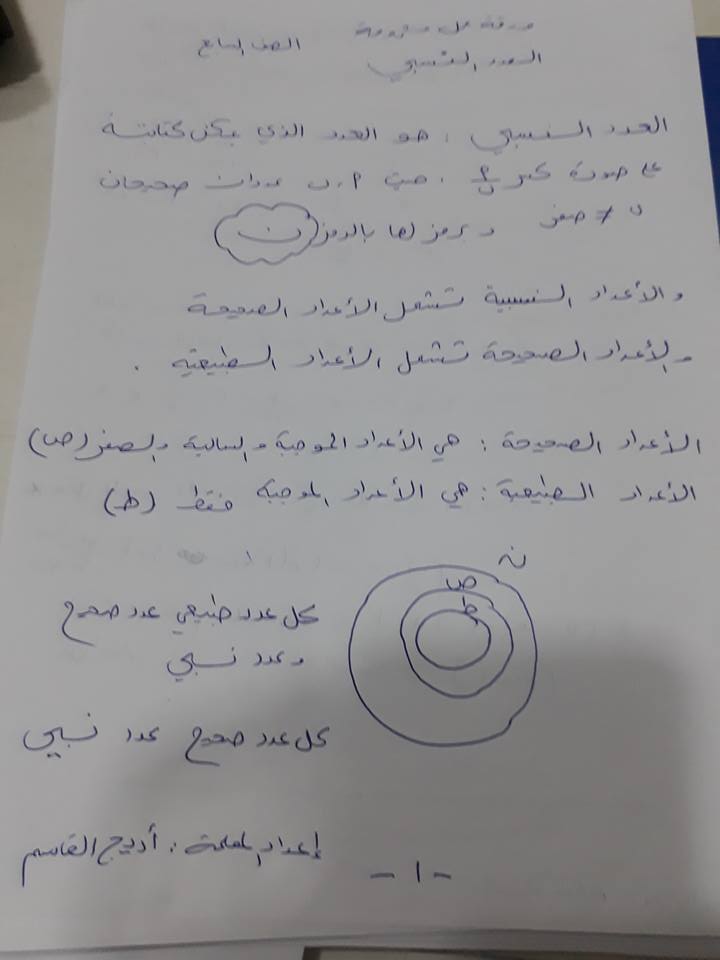 ورقة عمل الصف السابع
العدد النسبي
العدد النسبي : هو العدد الذي يمكن كتابته
على صورة كسر أ/ب ، حيث أ ، ب عددان صحيحان
ب ≠ صفر ويرمز لها بالرمز (ن)
والأعداد النسبية تشمل الأعداد الصحيحة
والأعداد الصحيحة تشمل الأعداد الطبيعية .
الأعداد الصحيحة : هي الأعداد الموجبة والسالبة والصفر (ص)
الأعداد الطبيعية : هي الأعداد الموجبة فقط (ط)
ن
ص
ط
كل عدد طبيعي عدد صحيح
وعدد نسبي
كل عدد صحيح عدد نسبي
إعداد المعلمة : أريج القاسم
- ١ -